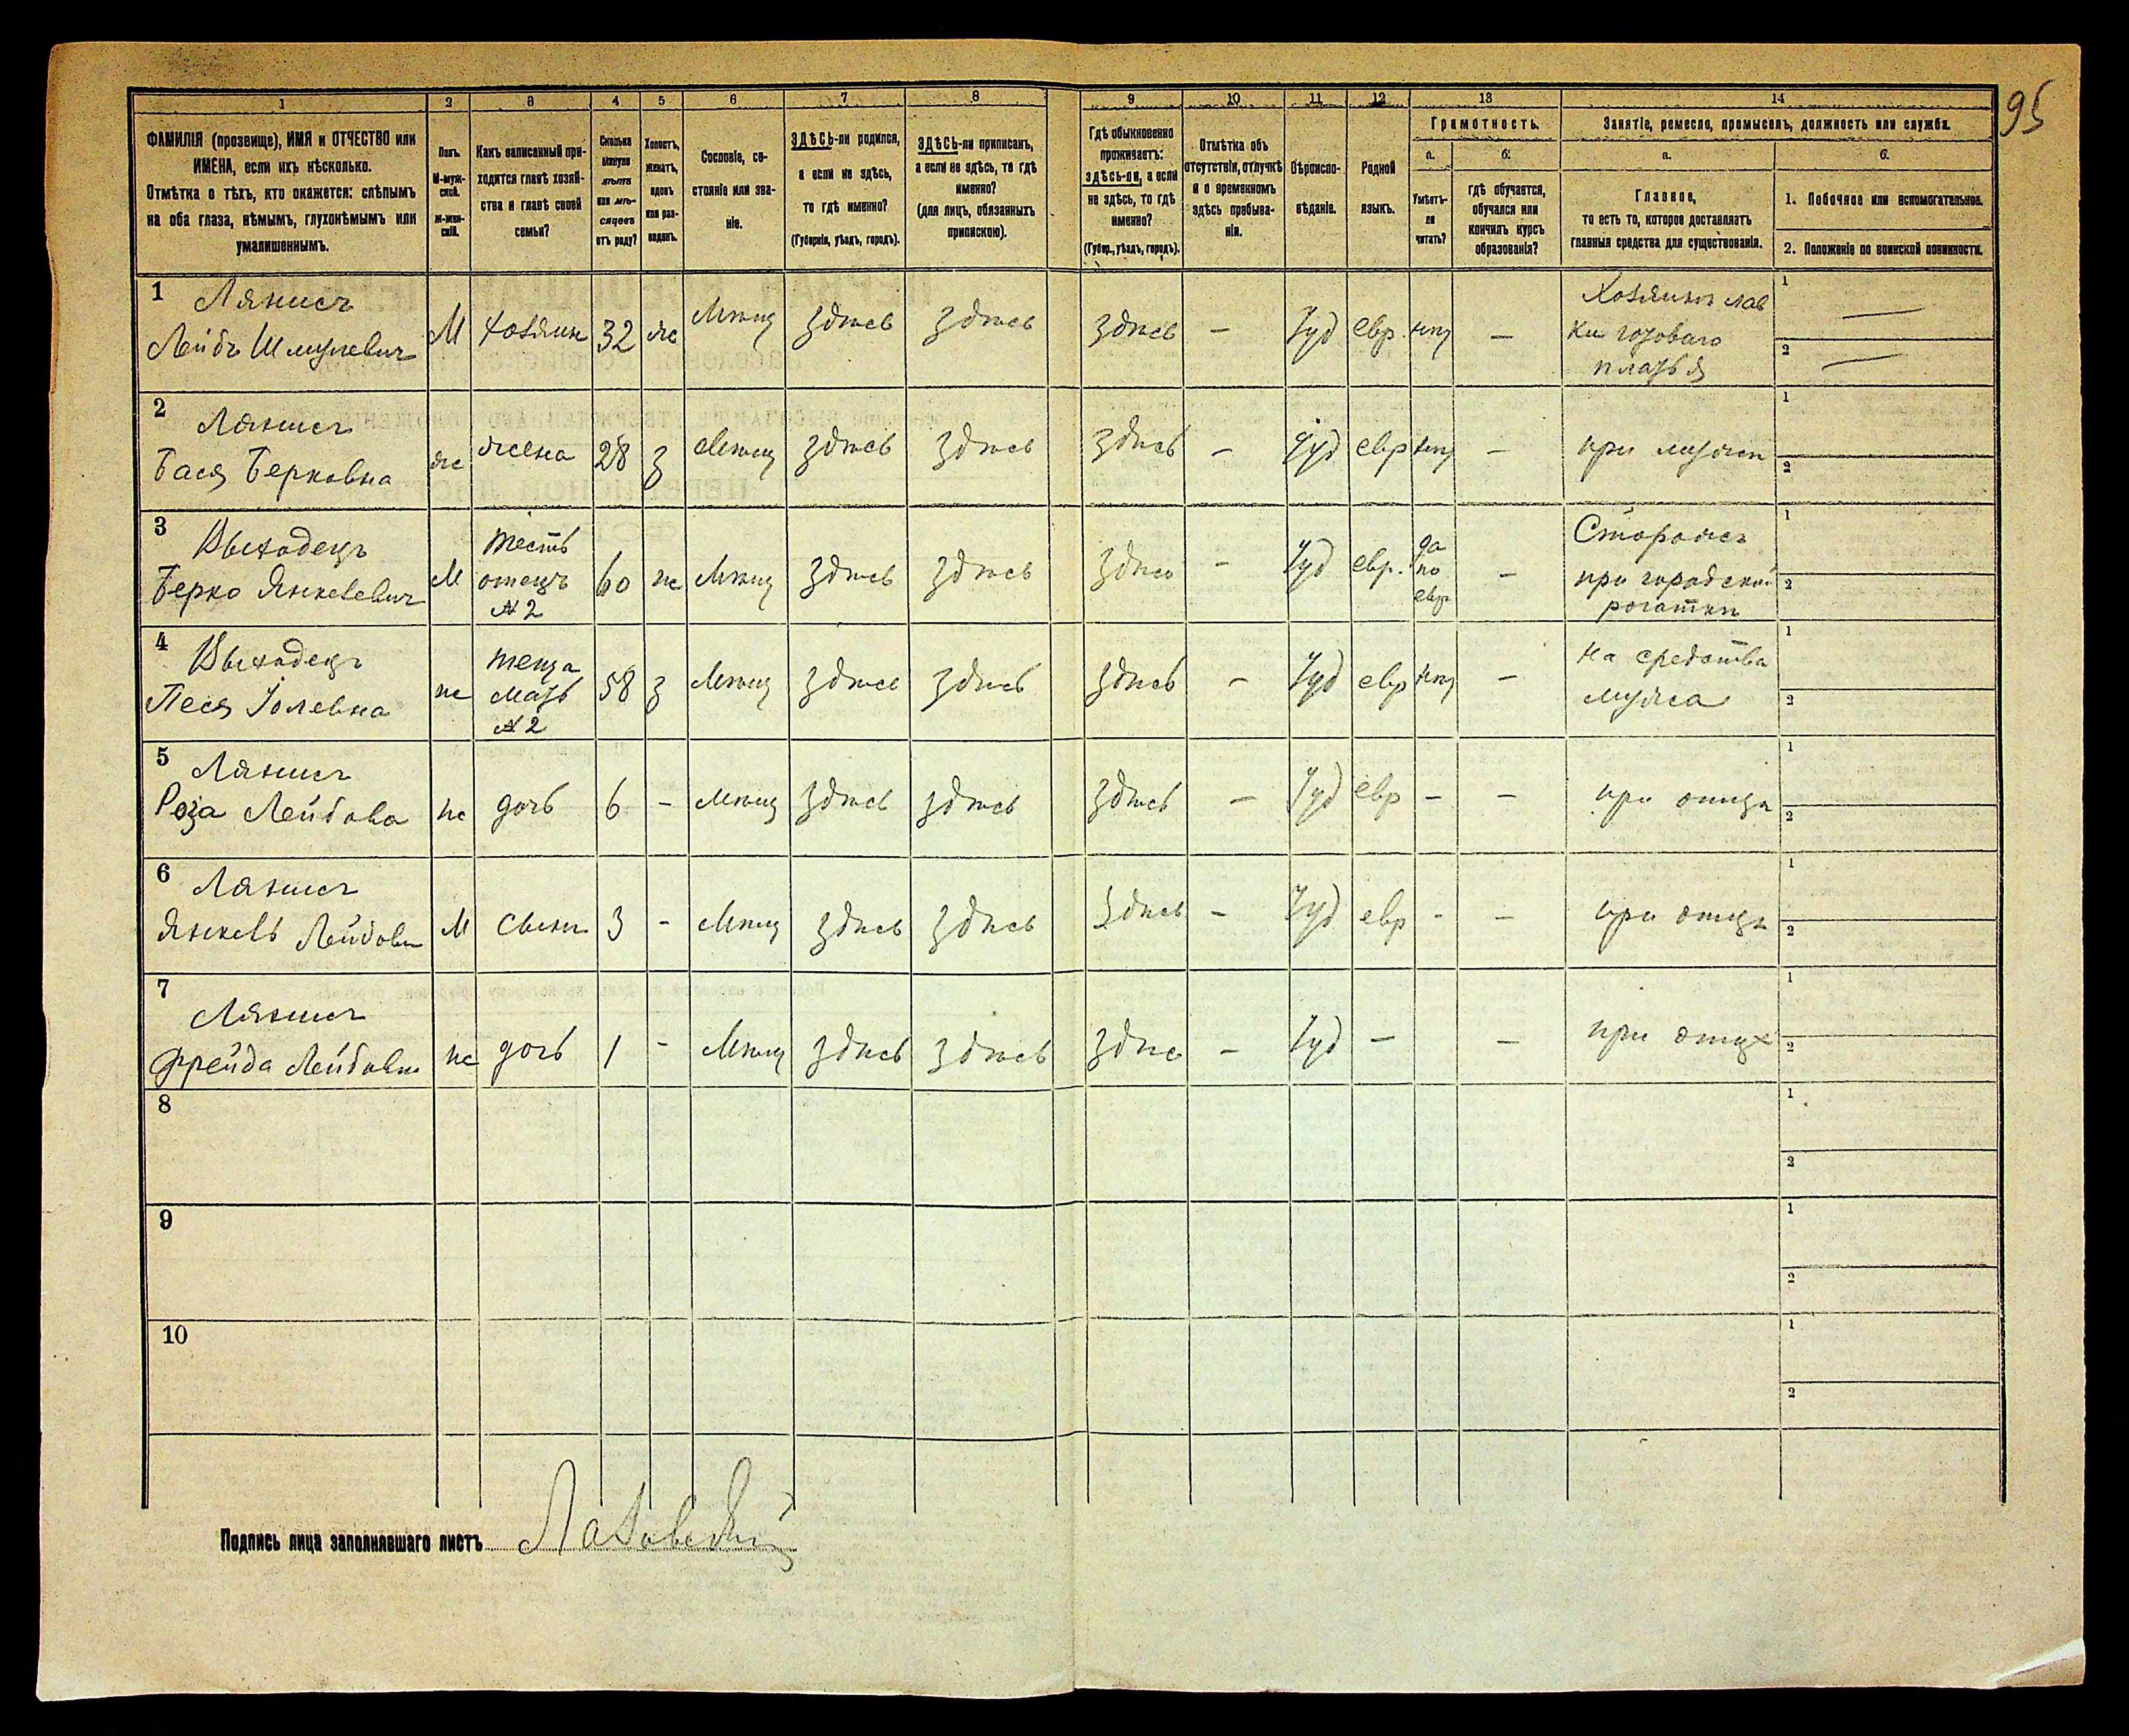 95
1 2 3 4 5 6 7 8 9 10 11 12 13 14
ФАМИЛІЯ (прозвище), ИМЯ и ОТЧЕСТВО или
ИМЕНА, если ихъ нѣсколько.
Отмѣтка о тѣхъ, кто окажется: слѣпымъ
на оба глаза, нѣмымъ, глухонѣмымъ или
умалишеннымъ.
Полъ.
М-муж-
ской.
Ж-жен-
скій.
Какъ записанный при-
ходится главѣ хозяй-
ства и главѣ своей
семьи?
Сколько
минуло
лѣтъ
или мѣ-
сяцевъ
отъ роду?
Холостъ,
женатъ,
вдовъ
или раз-
веденъ.
Сословіе, со-
стояніе или зва-
ніе.
ЗДѢСЬ-ли родился,
а если не здѣсь,
то гдѣ именно?
(Губернія, уѣздъ, городъ).
ЗДѢСЬ-ли приписанъ,
а если не здѣсь, то гдѣ
именно?
(для лицъ, обязанныхъ
припискою).
Гдѣ обыкновенно
проживаетъ:
здѣсь-ли, а если
не здѣсь, то гдѣ
именно?
(Губер., уѣздъ, городъ).
Отмѣтка объ
отсутствіи, отлучкѣ
и о временномъ
здѣсь пребыва-
ніи.
Вѣроиспо-
вѣданіе.
Родной
языкъ.
Грамотность.
а.
Умѣетъ-
ли
читать?
б.
гдѣ обучается,
обучался или
кончилъ курсъ
образованія?
Занятіе, ремесло, промыселъ, должность или служба.
а.
Главное,
то есть то, которое доставляетъ
главныя средства для существованія.
б.
1. Побочное или вспомогательное.
2. Положеніе по воинской повинности.
1 Лейбъ Шмулевич М хозяинъ 32 ж Мѣщ здѣсь здѣсь здѣсь — Іуд евр. нѣт —
Хозяинъ лав
ки готоваго
платья
1 —
2 —
2
Бася Берковна ж жена 28 з Мѣщ здѣсь здѣсь здѣсь — Іуд евр нѣт — при мужѣ
1
2
3 Выходецъ
Берко Янкелевич М
тесть
отецъ
№2
60 ж Мѣщ здѣсь здѣсь здѣсь — Іуд евр.
да
по
евр
—
Сторожъ
при городской
рогаткѣ
1
2
4 Выходецъ
Песя Іолевна ж
теща
мать
№2
58 з Мѣщ здѣсь здѣсь здѣсь — Іуд евр нѣт —
на средства
мужа
1
2
5
Роза Лейбова ж дочь 6 — Мѣщ здѣсь здѣсь здѣсь — Іуд евр — — при отцѣ
1
2
6
Янкель Лейбов М сынъ 3 — Мѣщ здѣсь здѣсь здѣсь — Іуд евр — — при отцѣ
1
2
7
Фрейда Лейбовна ж дочь 1 — Мѣщ здѣсь здѣсь здѣс — Іуд — — при отцѣ
1
2
8
1
2
9
1
2
10
1
2
Подпись лица заполнявшаго листъ